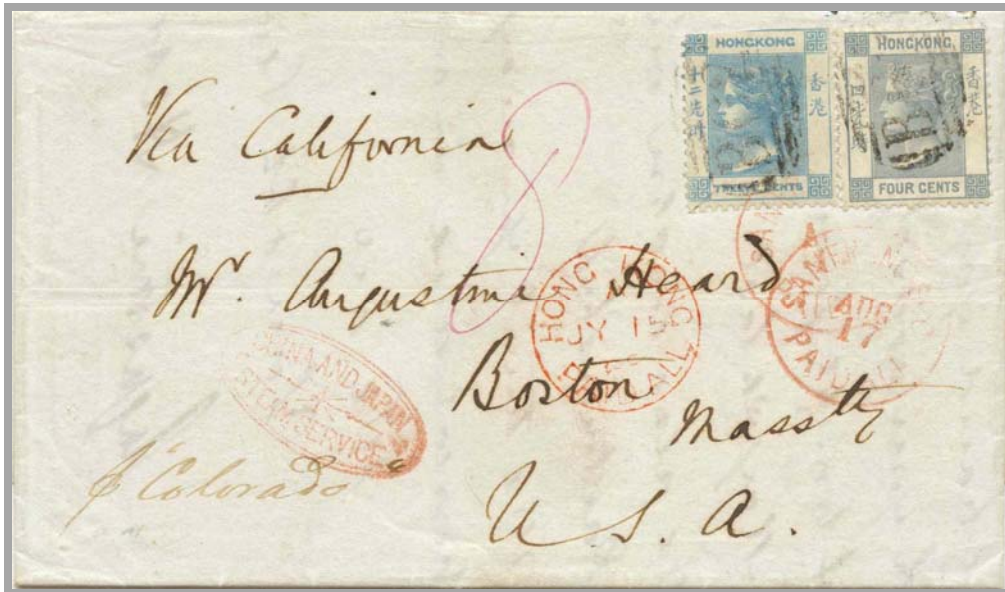 HONGKONG
十二先時
香港
TWELVE CENTS
HONGKONG
香港
FOUR CENTS
B
B
Via California
8
Mr. Augustine Heard
Boston
Massts
U. S. A.
HONG KONG
JY 15
PAID ALL
SAN
AUG
17
PAID ALL
CHINA AND JAPAN
STEAM SERVICE
p "Colorado"